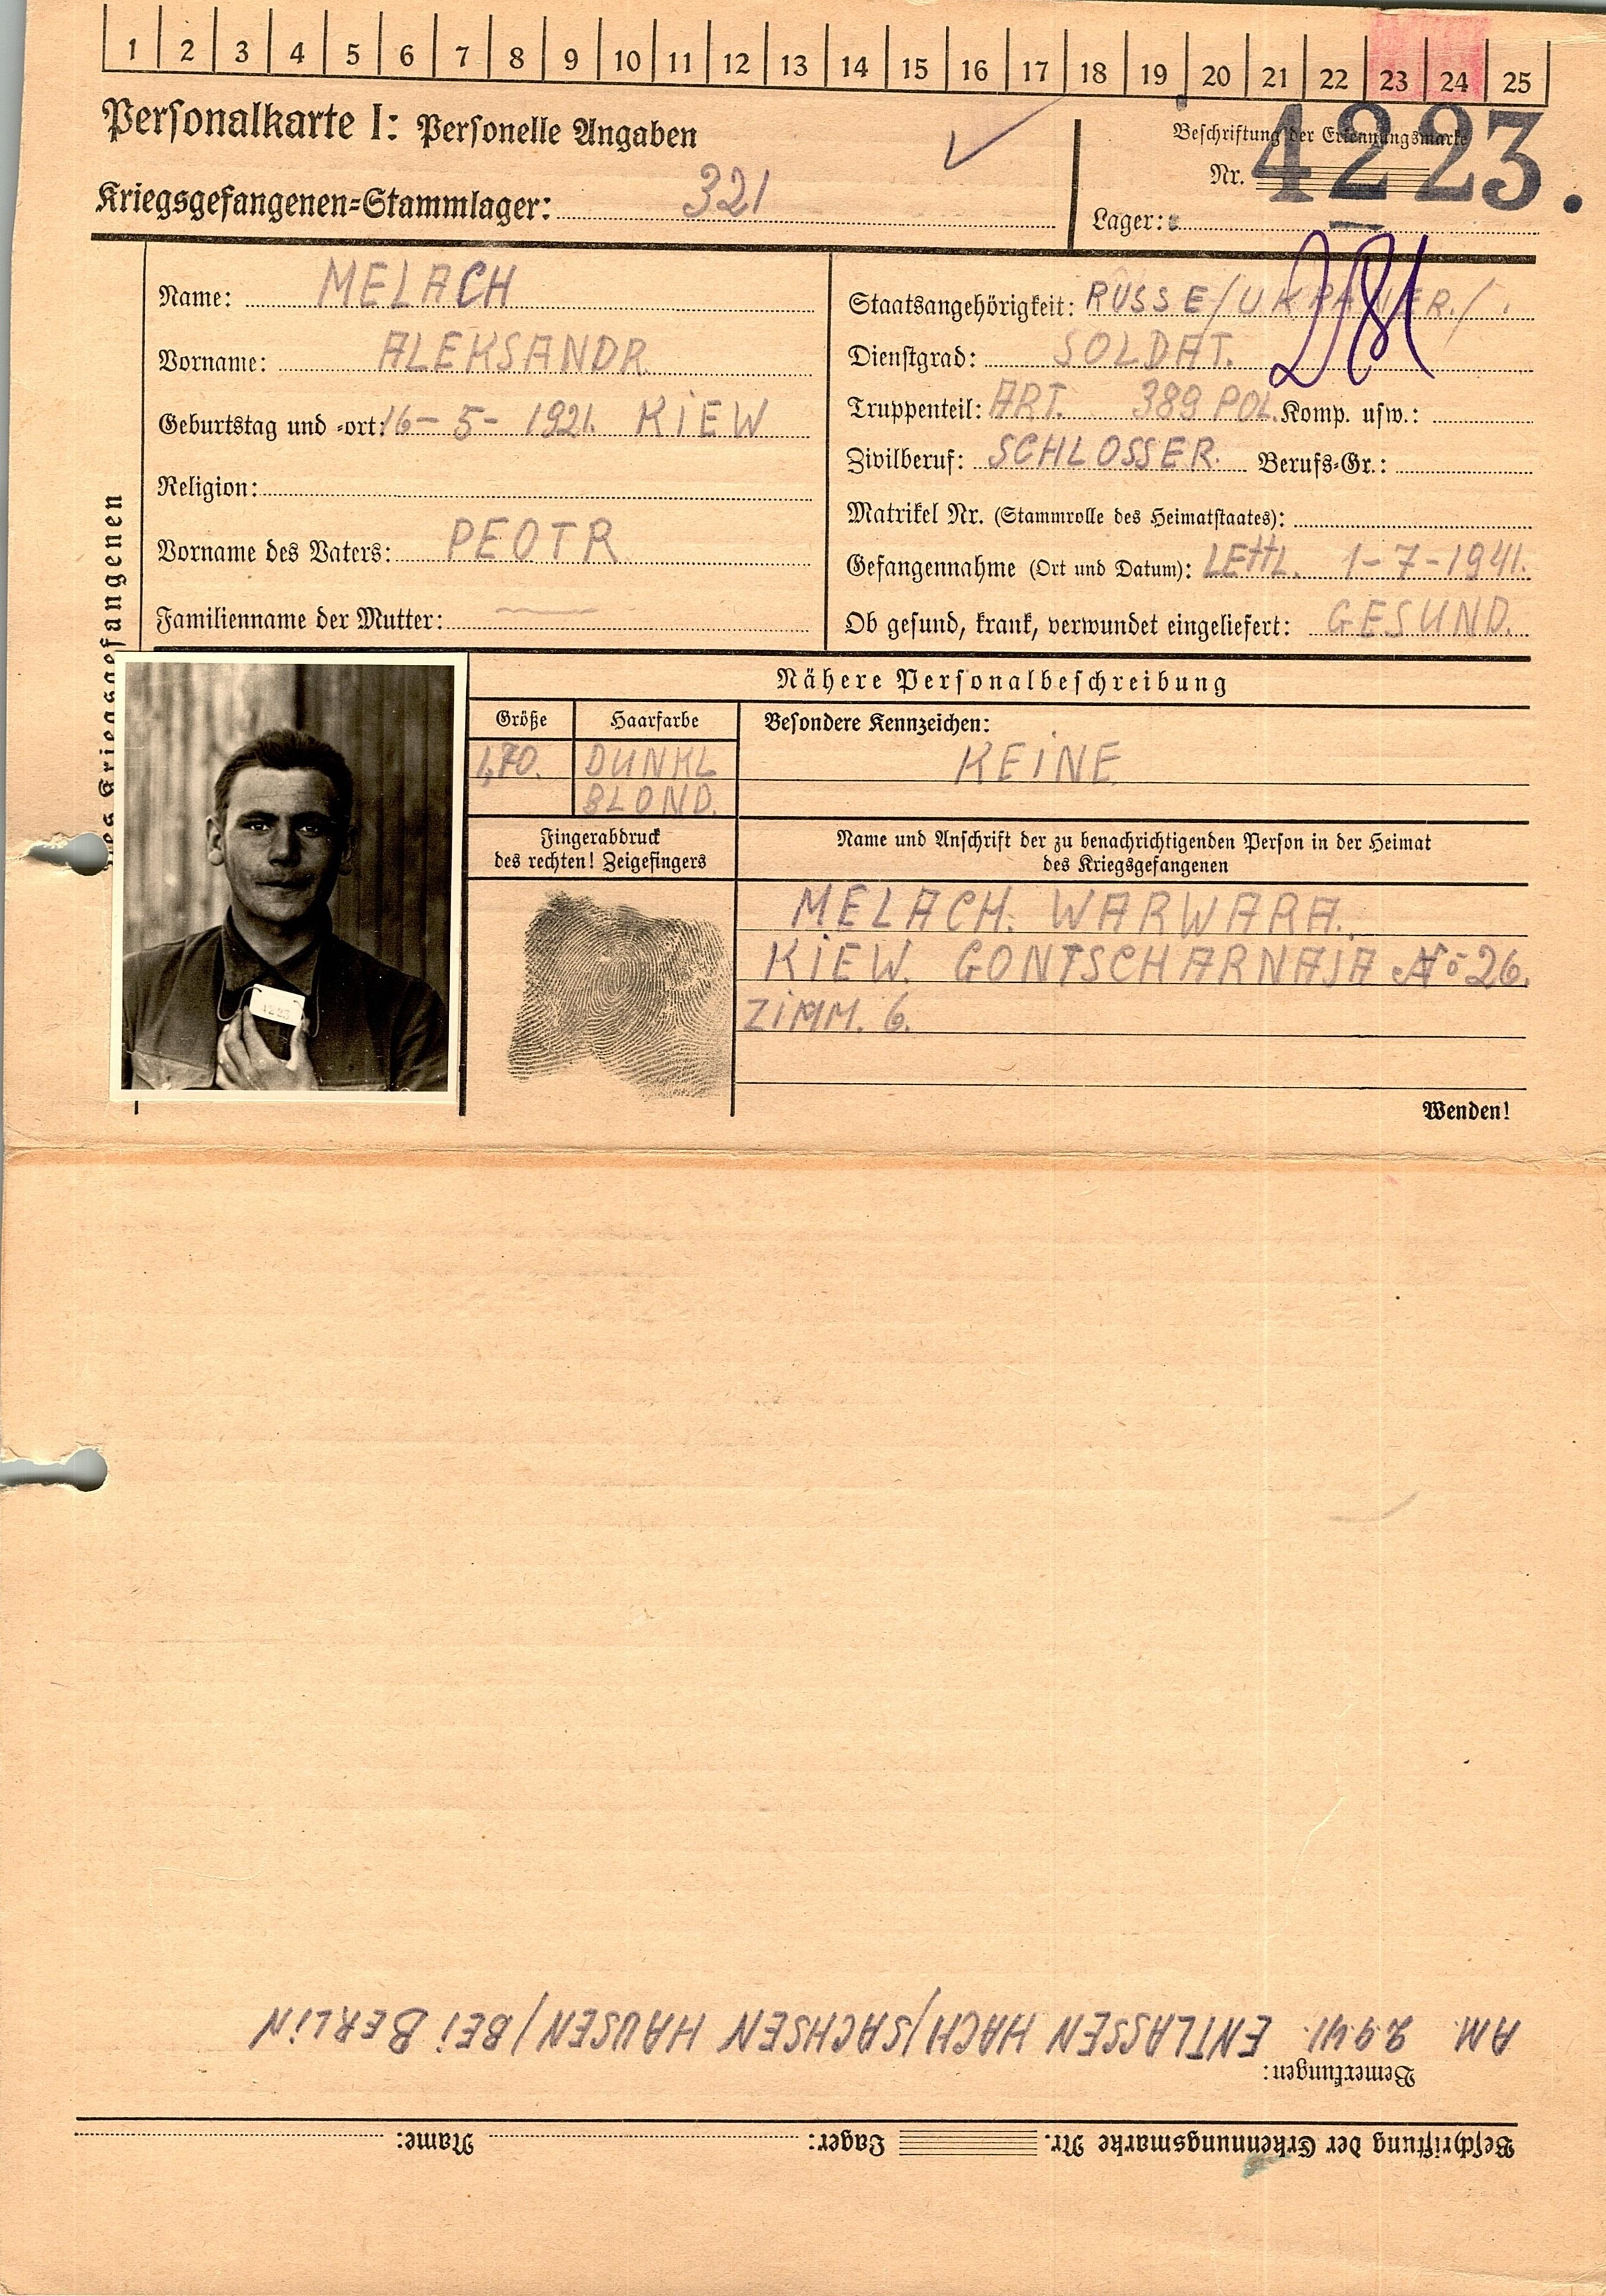 1 2 3 4 5 6 7 8 9 10 11 12 13 14 15 16 17 18 19 20 21 22 23 24 25
Personalkarte I: Personelle Angaben
Kriegsgefangenen=Stammlager: 321
Beschriftung der Erkennungsmarke
Nr. 4223.
Lager:
des Kriegsgefangenen
Name: MELACH
Vorname: ALEKSANDR
Geburtstag und =ort: 16-5-1921. KIEW
Religion:
Vorname des Vaters: PEOTR
Familienname der Mutter: —
281
Staatsangehörigkeit: RUSSE/UKRAINER./.
Dienstgrad: SOLDAT.
Truppenteil: ART. 389 POL. Komp. usw.:
Zivilberuf: SCHLOSSER. Berufs=Gr.:
Matrikel Nr. (Stammrolle des Heimatstaates):
Gefangennahme (Ort und Datum): LETTL. 1-7-1941.
Ob gesund, krank, verwundet eingeliefert: GESUND.
Nähere Personalbeschreibung
Größe
1,70.
Haarfarbe
DUNKL
BLOND.
Besondere Kennzeichen:
KEINE
Fingerabdruck
des rechten! Zeigefingers
Name und Anschrift der zu benachrichtigenden Person in der Heimat
des Kriegsgefangenen
MELACH. WARWARA.
KIEW. GONTSCHARNAJA No 26.
ZIMM. 6.
4223
Wenden!
Beschriftung der Erkennungsmarke Nr. Lager: Name:
Bemerkungen:
AM 2.9.41. ENTLASSEN HACH/SACHSEN HAUSEN/BEI BERLIN